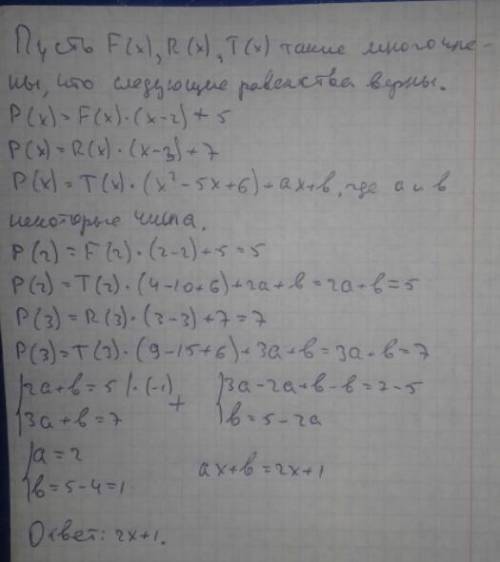 Пусть F(x), R(x), T(x) такие многочле-
ны, что следующие равенства верны.
P(x) = F(x)·(x-2) + 5
P(x) = R(x)·(x-3) + 7
P(x) = T(x)·(x²-5x+6) + ax+b, где a и b
некоторые числа.
P(2) = F(2)·(2-2)+5 = 5
P(2) = T(2)·(4-10+6)+2a+b = 2a+b = 5
P(3) = R(3)·(3-3)+7 = 7
P(3) = T(3)·(9-15+6)+3a+b = 3a+b = 7
{2a+b=5 |·(-1) + {3a-2a+b-b=7-5
3a+b=7 b=5-2a
{a=2 ax+b=2x+1
b=5-4=1
Ответ: 2x+1.